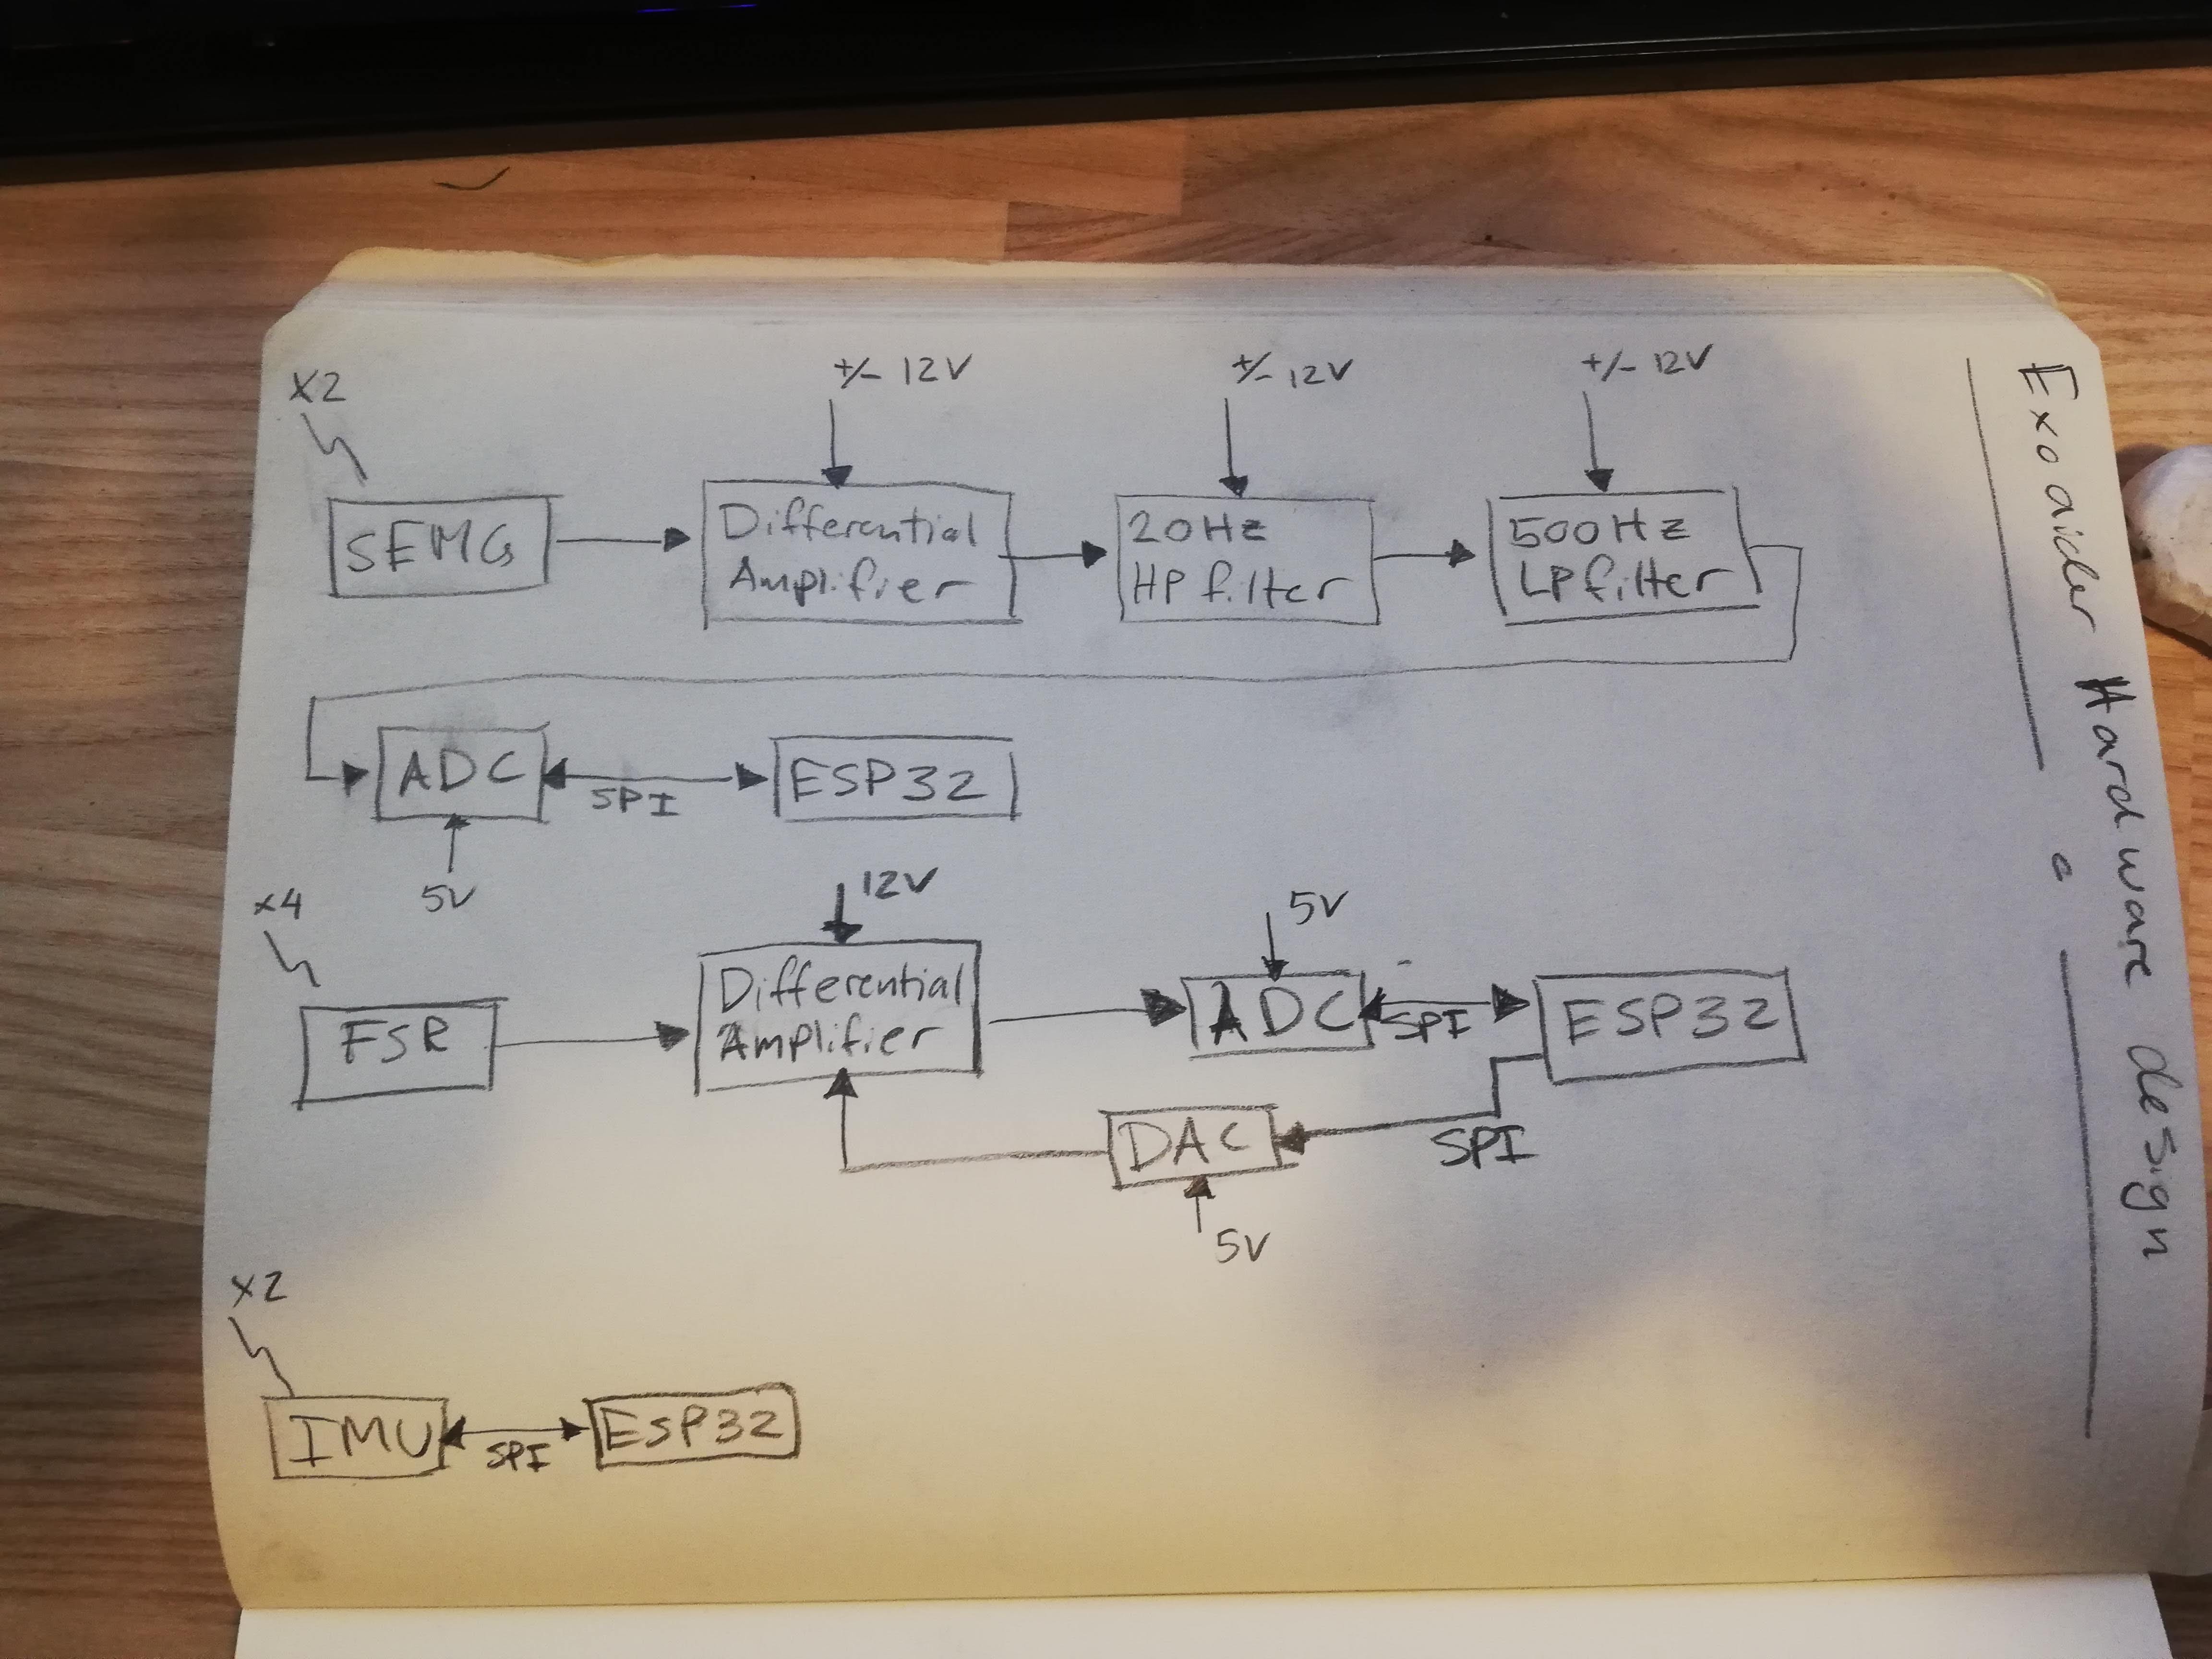 Exoaider Hardware design
+/- 12V
+/- 12V
+/- 12V
x2
SEMG
Differential
Amplifier
20Hz
HP filter
500Hz
LP filter
ADC
SPI
ESP32
5V
x4
12V
5V
FSR
Differential
Amplifier
ADC
SPI
ESP32
DAC
SPI
5V
x2
IMU
SPI
ESP32